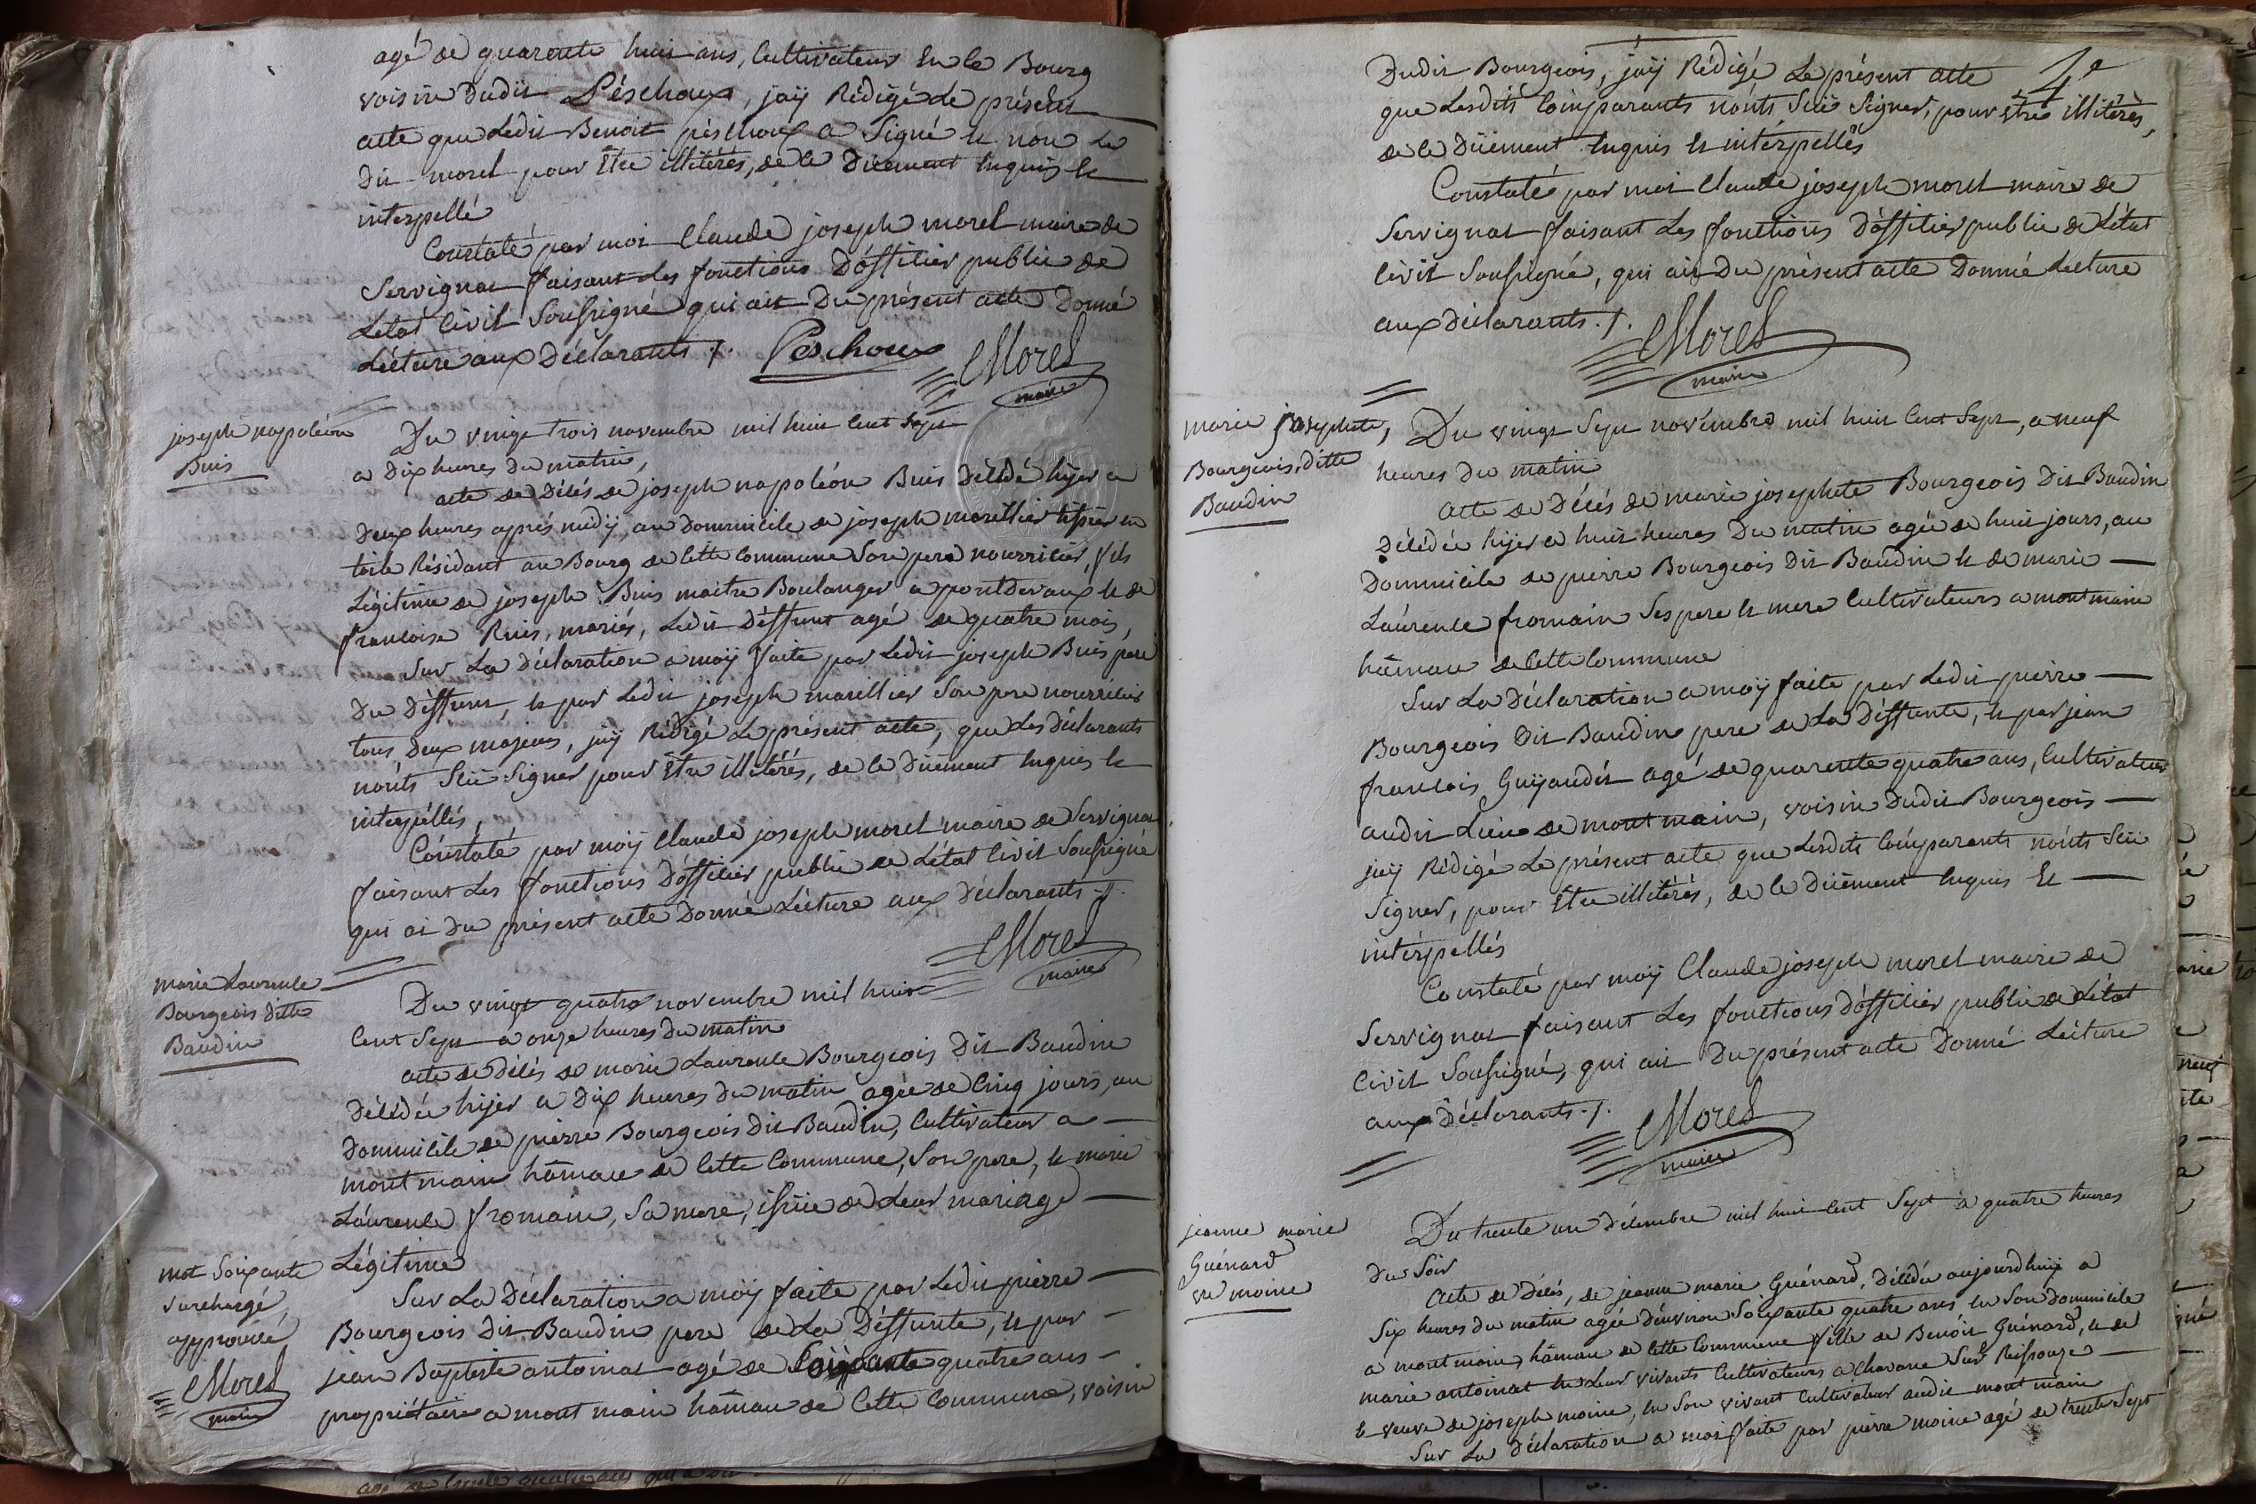 agé de quarente huit ans, Cultivateur En ce Bourg
voisin Dudit Péschoux, jaÿ Rédigé Le présent
acte que Ledit Benoit péschoux a Signé et non Le
dit morel pour Etre illitérés, de ce Dûement Enquis et
interpellé
Constaté par moi Claude joseph morel maire de
Servignat faisant Les fonctions D'óffitier public de
Létat Civil Soussigné qui ait Du présent acte Donné
Lécture aux Déclarants ./.
Peschoux
CMorel
maire
joseph napoléon
Buis
Du vingt trois novembre mil huit Cent Sept
a Dix heures du matin,
acte de Décés de joseph napoléon Buis Décédé hÿer a
Deux heures aprés midÿ, au Dommicile de joseph marillier tisseur en
toile Résidant au Bourg de Cette Commune Son pere nourricier, fils
Légitime de joseph Buis maitre Boulanger a pontdevaux et de
francoise Ruis, mariés, Ledit Déffunt agé de quatre mois,
Sur La Déclaration a moÿ faite par Ledit joseph Buis pere
Du Déffunt, et par Ledit joseph marillier Son pere nourricier
tous Deux majeurs, jaÿ Rédigé Le présent acte, que Les déclarants
nónts Scû Signer pour Etre illitérés, de ce Dûement Enquis et
interpéllés,
Cónstaté par moÿ Claude joseph morel maire de Servignat
faisant Les fonctions D'óffitier public de Létat Civil Soussigné
qui ai du présent acte Donné Lécture aux Déclarants ./.
CMorel
maire
marie Laurence
Bourgeois ditte
Baudin
Du vingt quatre novembre mil huit
Cent Sept a onze heures du matin
acte de Décés de marie Laurence Bourgeois Dit Baudin
Décédée hÿer a Dix heures du matin agée de Cinq jours, au
Dommicile de pierre Bourgeois Dit Baudin, Cultivateur a
mont main hâmau de Cette Commune, Son pere, et marie
Laurence fromain, Sa mere, issûe de Leur mariage
Légitime
Sur La Déclaration a moÿ faite par Ledit pierre
Bourgeois Dit Baudin pere de La Déffunte, et par
jean Baptiste antoinat agé de Soixante quatre ans
propriétaire a mont main hâmau de Cette Commune, voisin
mot Soixante
Surchargé
approuvé
CMorel
maire
4e
Dudit Bourgeois, jaÿ Rédigé Le présent acte
que Lesdits Cómparants nónts Scû Signer, pour Etre illitérés,
de ce Dûement Enquis et intérpellés
Constaté par moi Claude joseph morel maire de
Servignat faisant Les fonctions D'óffitier public de Létat
Civil Soussigné, qui ait Du présent acte Donné Lecture
aux déclarants ./.
CMorel
maire
marie josephte,
Bourgeois, ditte
Baudin
Du vingt Sept novembre mil huit Cent Sept, a neuf
heures du matin
acte de Décés de marie josephte Bourgeois Dit Baudin
Décédée hÿer a huit heures Du matin agée de huit jours, au
Dommicile de pierre Bourgeois Dit Baudin et de marie
Laúrence fromain Ses pere et mere Cultivateurs a mont main
hâmau de Cette Commune
Sur La Déclaration a moÿ faite par Ledit pierre
Bourgeois Dit Baudin pere de La Déffunte, et par jean
francois Guÿaudét agé de quarente quatre ans, Cultivateur
audit Lieu de mont main, voisin Dudit Bourgeois
jaÿ Rédigé Le présent acte que Lesdits Cómparants nónts Scû
Signer, pour Etre illitérés, de ce Dûement Enquis Et
intérpellés
Constaté par moÿ Claude joseph morel maire de
Servignat faisant Les fonctions D'óffitier public de Létat
Civil Soussigné, qui ait Du présent acte Donné Lécture
aux Déclarants ./.
CMorel
maire
jeanne marie
Guénard
ve moine
Du trente un Décembre mil huit Cent Sept a quatre heures
du Soir
Acte de Décés, de jeanne marie Guénard, Décédée aujourdhuÿ a
Six heures du matin agée d'environ Soixante quatre ans En Son dommicile
a mont main hâmau de Cette Commune fille de Benóit Guénard, et de
marie antoinat En Leur vivants Cultivateurs a Chavane Sur Reissouze
et veuve de joseph moine, En Son vivant Cultivateur audit mont main
Sur La Déclaration a moi faite par pierre moine agé de trente Sept